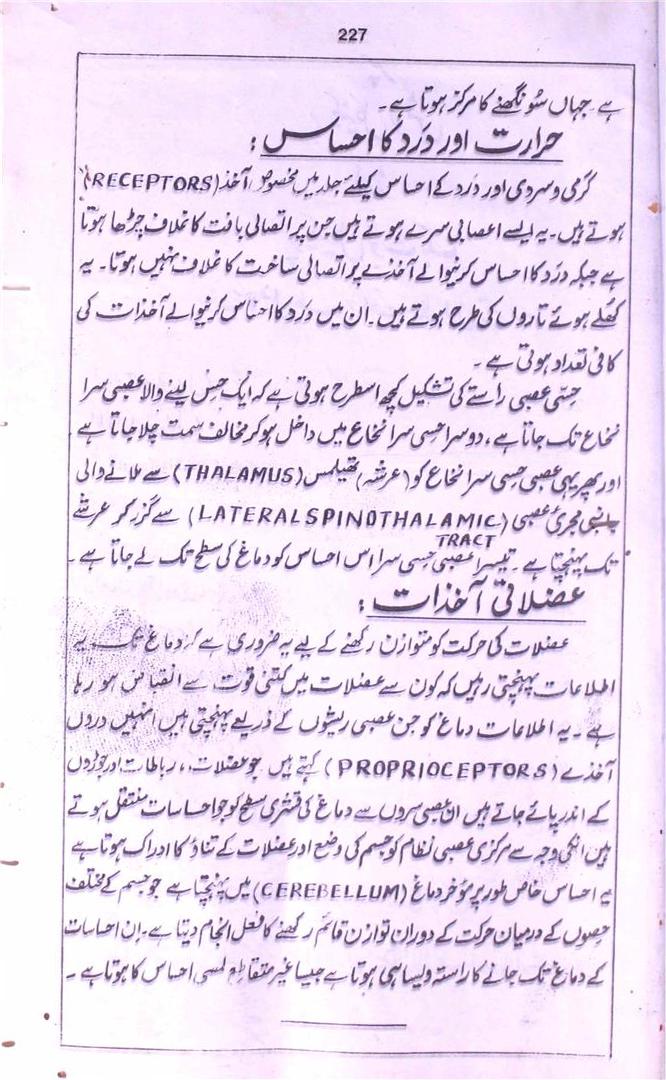 227
ہے جہاں سُونگھنے کا مرکز ہوتا ہے۔
حرارت اور دَرد کا احساس :
گرمی و سردی اور دَرد کے احساس کیلئے جلد میں مخصوص آخذ (RECEPTORS)
ہوتے ہیں۔ یہ ایسے اعصابی سرے ہوتے ہیں جن پر اتصالی بافت کا غلاف چڑھا ہوتا
ہے جبکہ دَرد کا احساس کرنیوالے آخذے پر اتصالی ساخت کا غلاف نہیں ہوتا۔ یہ
کھُلے ہوئے تاروں کی طرح ہوتے ہیں۔ ان میں دَرد کا احساس کرنیوالے آخذات کی
کافی تعداد ہوتی ہے۔
حِسّی عصبی راستے کی تشکیل کچھ اسطرح ہوتی ہے کہ ایک حِس لینے والا عصبی سرا
نخاع تک جاتا ہے، دوسرا حسی سرا نخاع میں داخل ہو کر مخالف سمت چلا جاتا ہے
اور پھر یہی عصبی حسی سرا نخاع کو (عرشہ) تھیلمس (THALAMUS) سے ملانے والی
جانبی مجریٰ عصبی (LATERAL SPINOTHALAMIC TRACT) سے گزر کر عرشے
تک پہنچتا ہے۔ تیسرا عصبی حِسی سرا اس احساس کو دماغ کی سطح تک لے جاتا ہے۔
عضلاتی آخذات :
عضلات کی حرکت کو متوازن رکھنے کے لیے یہ ضروری ہے کہ دماغ تک یہ
اطلاعات پہنچتی رہیں کہ کون سے عضلات میں کتنی قوت سے انقباض ہو رہا
ہے۔ یہ اطلاعات دماغ کو جن عصبی ریشوں کے ذریعے پہنچتی ہیں انہیں دروں
آخذے (PROPRIOCEPTORS) کہتے ہیں جو عضلات، رباطات اور جوڑوں
کے اندر پائے جاتے ہیں ان عصبی سروں سے دماغ کی قشری سطح کو جو احساسات منتقل ہوتے
ہیں انکی وجہ سے مرکزی عصبی نظام کو جسم کی وضع اور عضلات کے تناؤ کا ادراک ہوتا ہے
یہ احساس خاص طور پر مؤخر دماغ (CEREBELLUM) میں پہنچتا ہے جو جسم کے مختلف
حِصوں کے درمیان حرکت کے دوران توازن قائم رکھنے کا فعل انجام دیتا ہے۔ ان احساسات
کے دماغ تک جانے کا راستہ ویسا ہی ہوتا ہے جیسا غیر متقاطع لمسی احساس کا ہوتا ہے۔